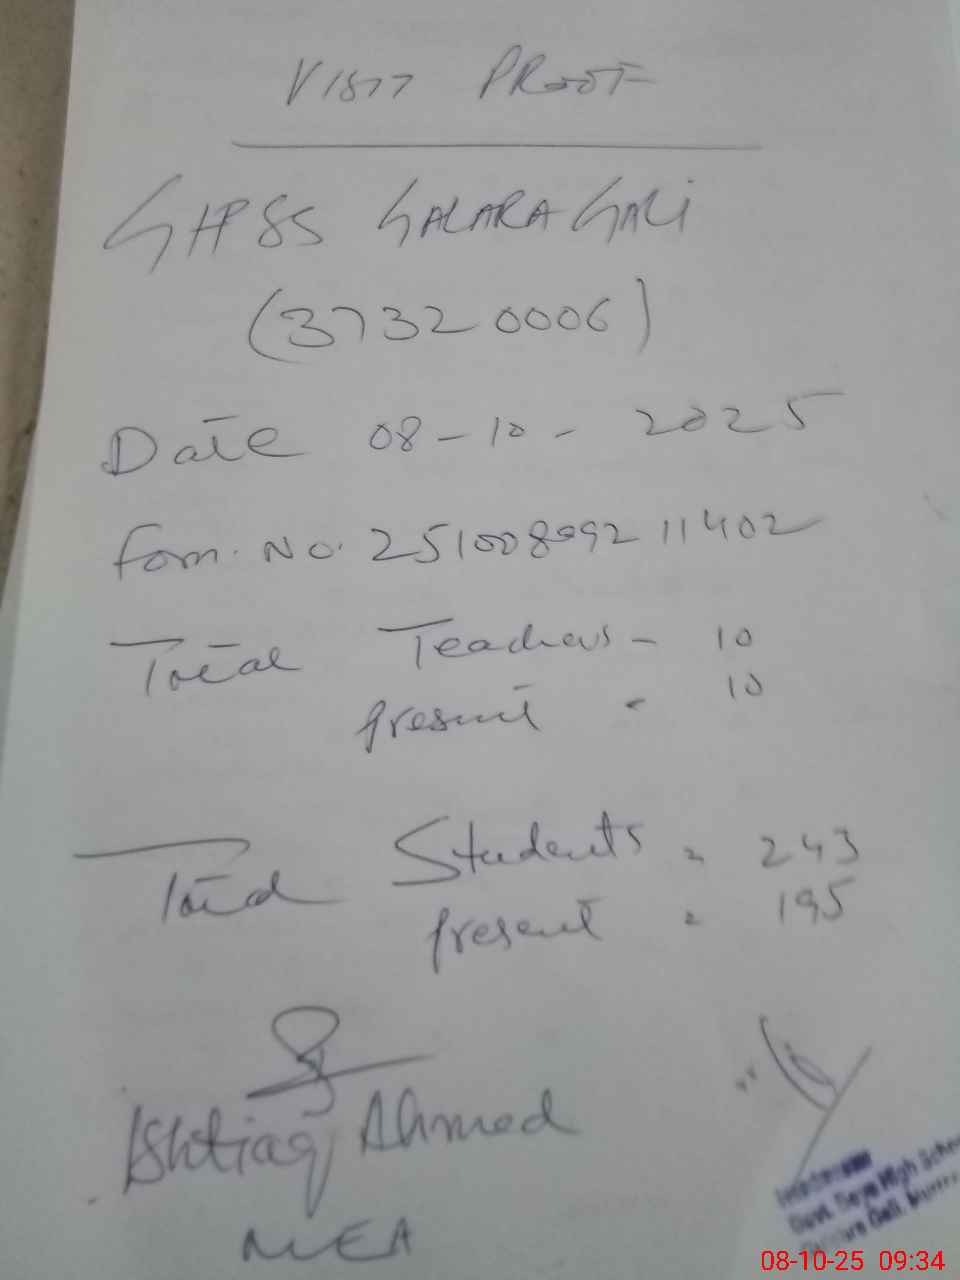 VISIT PROOF
GHSS GALARA GALI
(37320006)
Date 08-10-2025
Form No. 251008092 11402
Total Teachers - 10
present - 10
Total Students = 243
present = 195
Ishtiaq Ahmed
MEA
Govt. Boys High School
Gali.
08-10-25 09:34